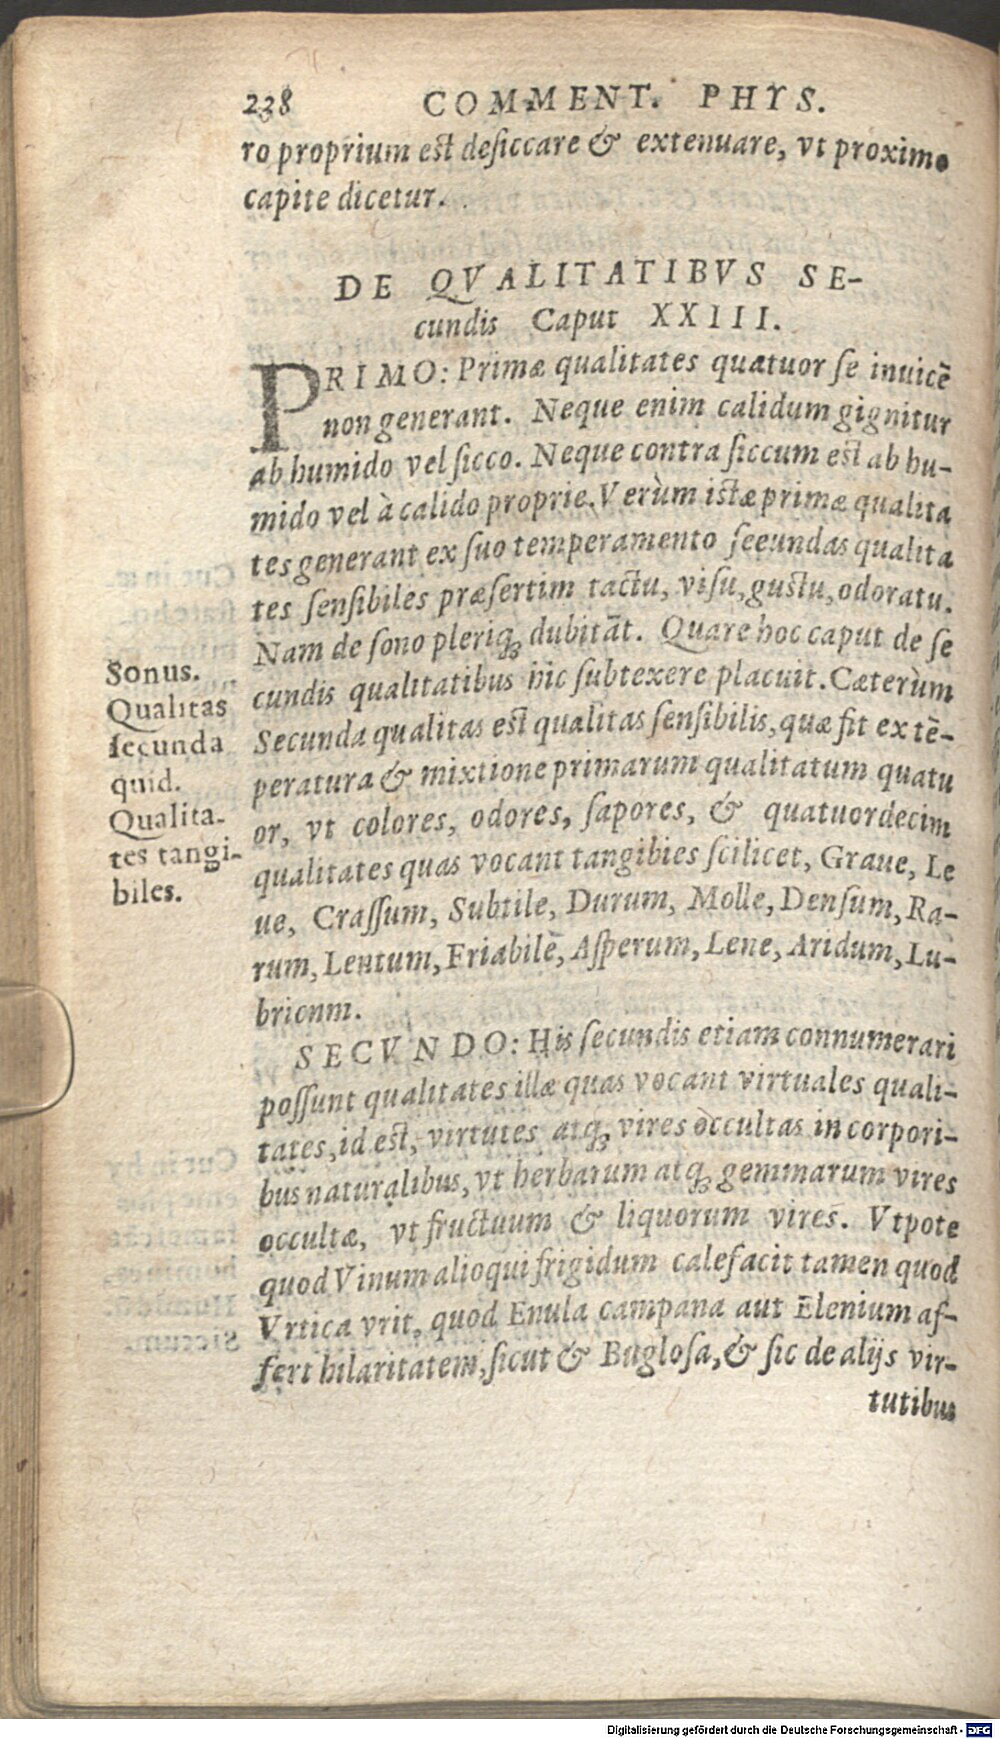 238 COMMENT. PHYS.
ro proprium est desiccare & extenuare, vt proximo
capite dicetur.
DE QVALITATIBVS SE-
cundis Caput XXIII.
PRIMO: Primæ qualitates quatuor se inuicē
non generant. Neque enim calidum gignitur
ab humido vel sicco. Neque contra siccum est ab hu-
mido vel à calido proprie. Verùm istæ primæ qualita
tes generant ex suo temperamento seeundas qualita
tes sensibiles præsertim tactu, visu, gustu, odoratu.
Nam de sono pleriq; dubitāt. Quare hoc caput de se
cundis qualitatibus hic subtexere placuit. Cæterùm
Secunda qualitas est qualitas sensibilis, quæ fit ex tē-
peratura & mixtione primarum qualitatum quatu
or, vt colores, odores, sapores, & quatuordecim
qualitates quas vocant tangibies scilicet, Graue, Le
ue, Crassum, Subtile, Durum, Molle, Densum, Ra-
rum, Lentum, Friabile, Asperum, Lene, Aridum, Lu-
bricnm.
Sonus.
Qualitas
secunda
quid.
Qualita-
tes tangi-
biles.
SECVNDO: His secundis etiam connumerari
possunt qualitates illæ quas vocant virtuales quali-
tates, id est, virtutes atq; vires occultas in corpori-
bus naturalibus, vt herbarum atq; gemmarum vires
occultæ, vt fructuum & liquorum vires. Vtpote
quod Vinum alioqui frigidum calefacit tamen quod
Vrtica vrit, quod Enula campana aut Elenium af-
fert hilaritatem, sicut & Buglosa, & sic de alijs vir-
tutibus
Digitalisierung gefördert durch die Deutsche Forschungsgemeinschaft - DFG